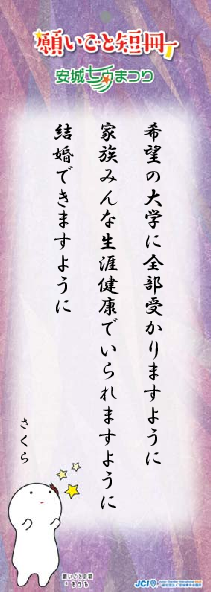 願いごと短冊
安城七夕まつり
希望の大学に全部受かりますように
家族みんな生涯健康でいられますように
結婚できますように
さくら
願いごと短冊
JCI